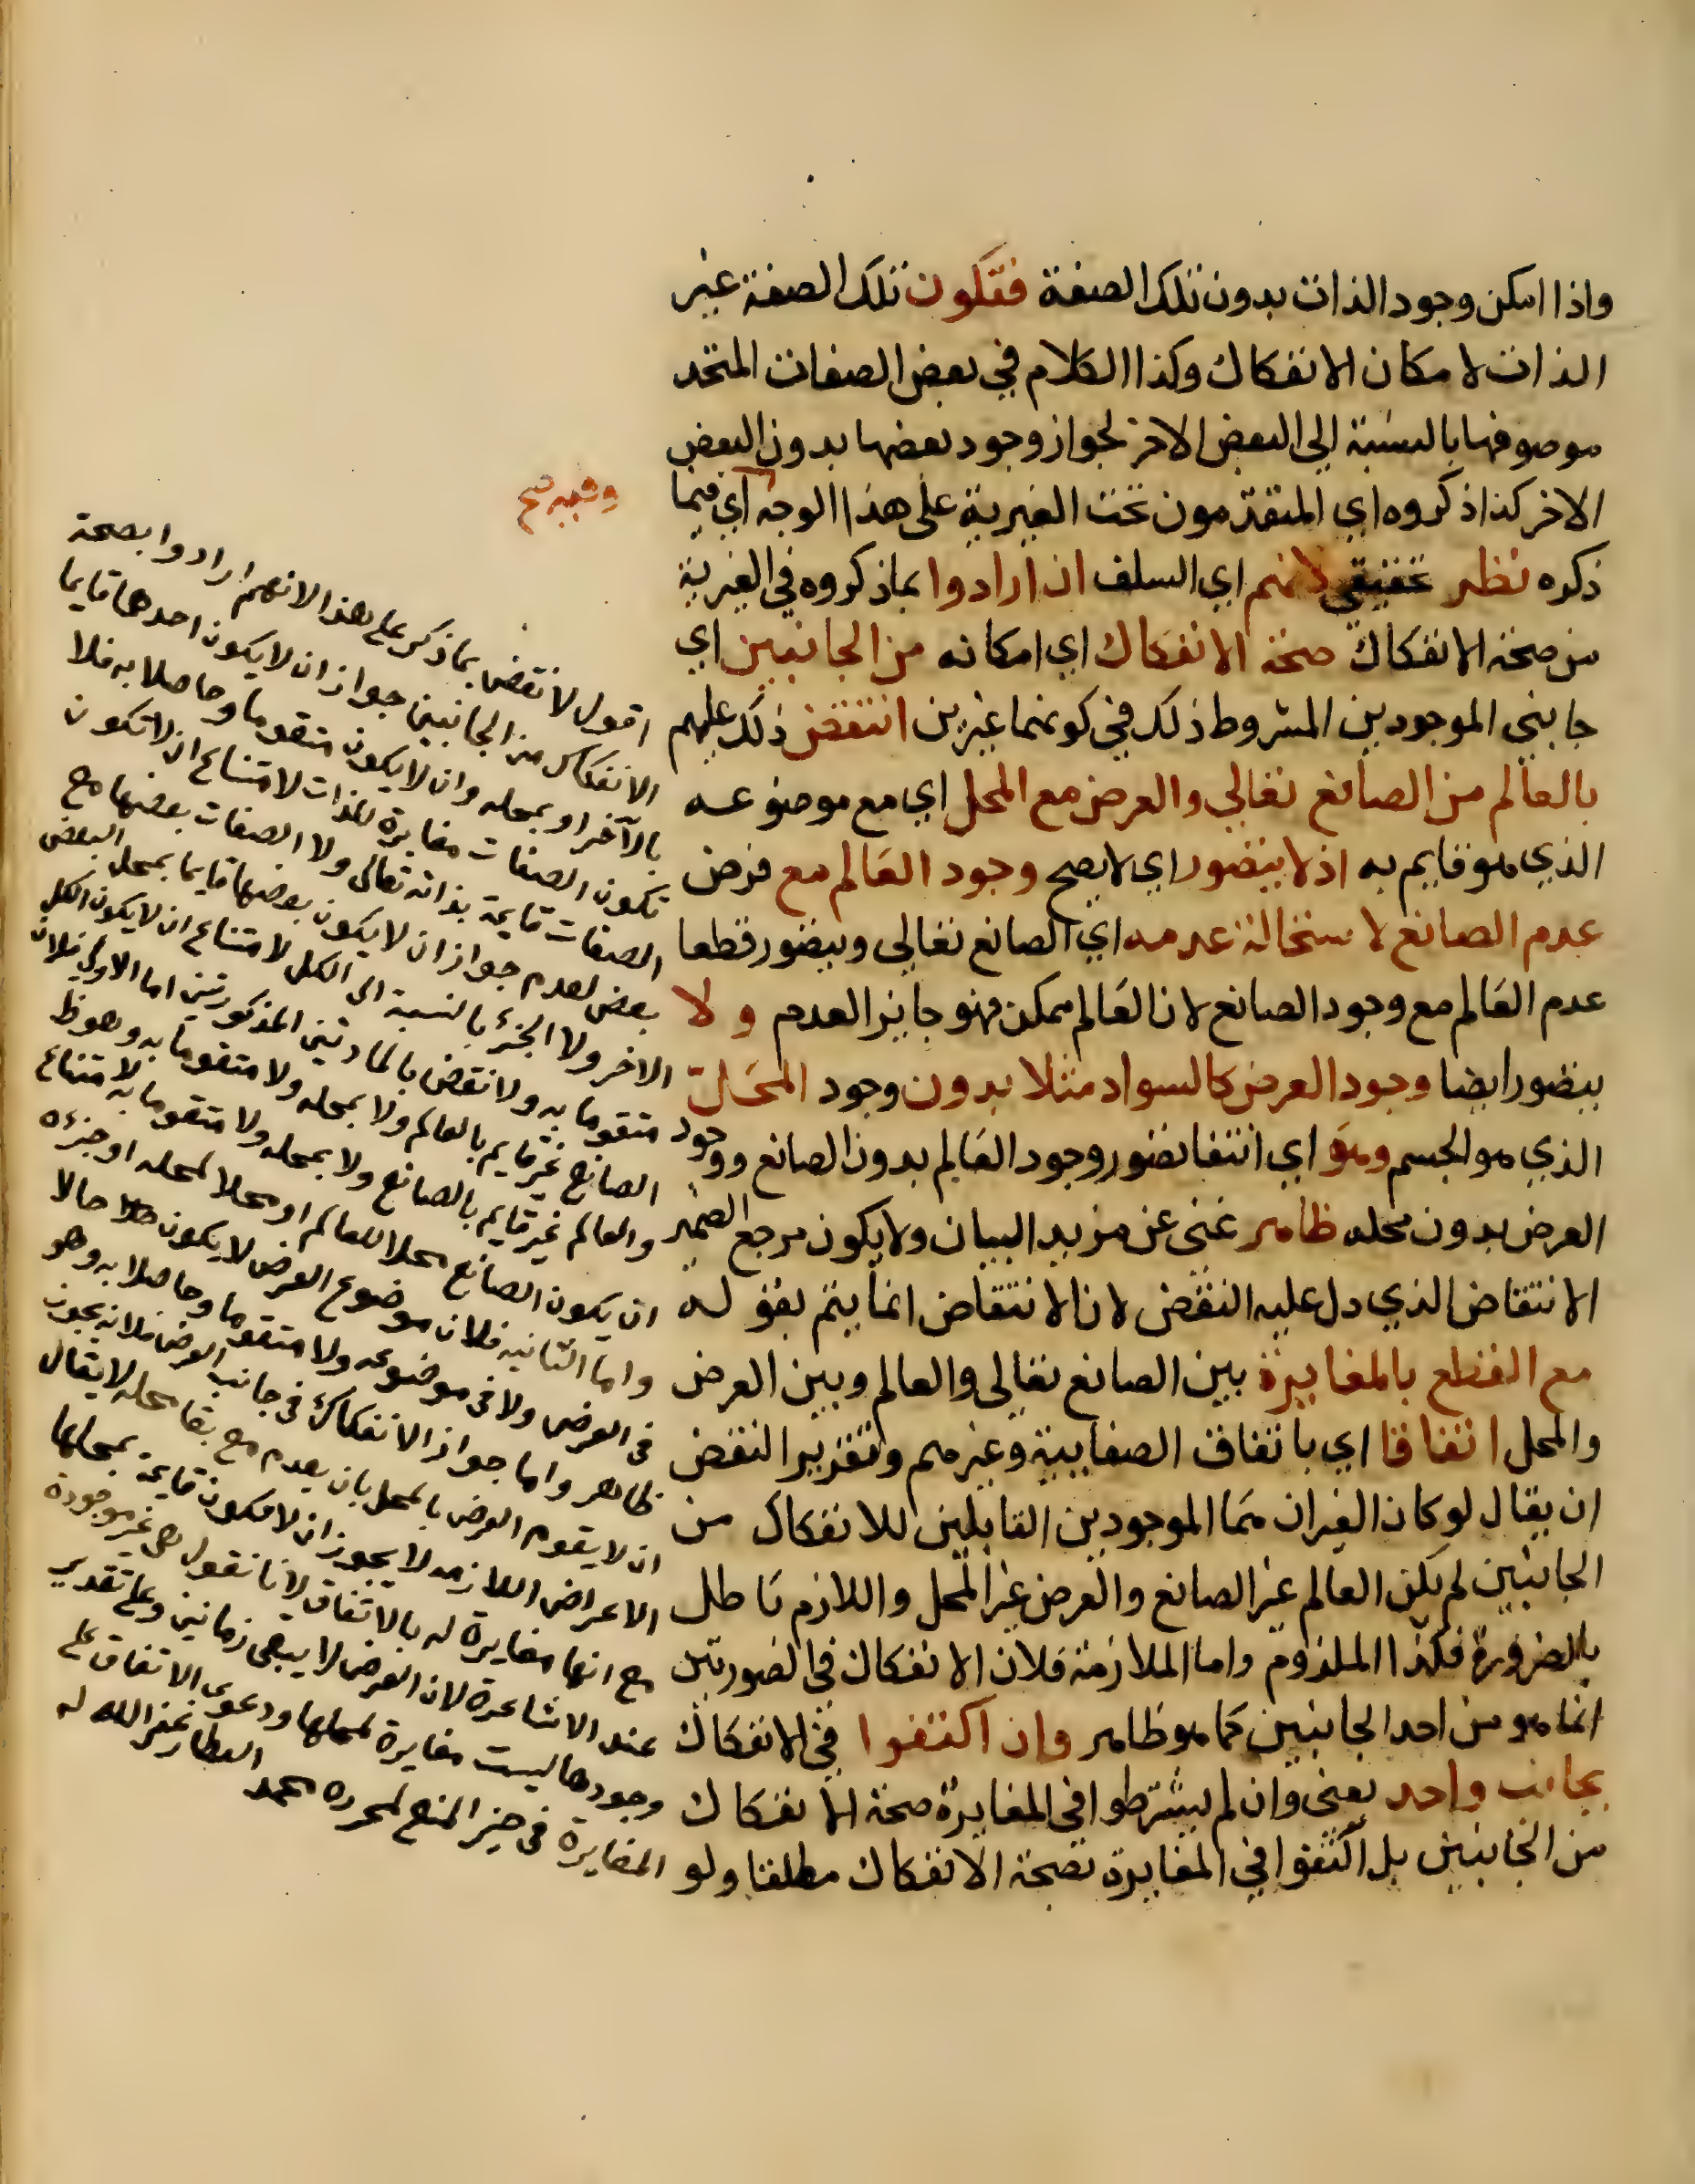 واذا امكن وجود الذات بدون تلك الصفة فتكون تلك الصفة غير
الذات لا مكان الانفكاك وكذا الكلام في بعض الصفات المتحد
موصوفها بالنسبة الى البعض الاخر لجواز وجود بعضها بدون البعض
الاخر كذا ذكروه اي المتقدمون تحت الغيرية على هذا الوجه اي فيما
وفيه صح
ذكره نظر حقيقي لانهم اي السلف ان ارادوا بماذكروه في الغيرية
من صحة الانفكاك صحة الانفكاك اي امكانه من الجانبين اي
جانبي الموجودين المشروط ذلك في كونهما غيرين انتقض ذلك عليهم
بالعالم من الصانع تعالي والعرض مع المحل اي مع موضوعه
الذي هو قايم به اذ لا يتصور اي لا يصح وجود العالم مع فرض
عدم الصانع لاستحالة عدمه اي الصانع تعالي ويتصور قطعا
عدم العالم مع وجود الصانع لان العالم ممكن فهو جايز العدم ولا
يتصور ايضا وجود العرض كالسواد مثلا بدون وجود المحل
الذي هو الجسم وهو اي انتفا تصور وجود العالم بدون الصانع ووجود
العرض بدون محله ظاهر غني عن مزيد البيان ولا يكون مرجع الضمير
الانتقاض الذي دل عليه النقض لان الانتقاض انما يتم بقوله
مع القطع بالمغايرة بين الصانع تعالى والعالم وبين العرض
والمحل اتفاقا اي باتفاق الصفاتية وغيرهم وتقرير النقض
ان يقال لو كان الغيران هما الموجودين القابلين للانفكاك من
الجانبين لم يكن العالم غير الصانع والعرض غير المحل واللازم باطل
بالضرورة فكذا الملزوم واما الملازمة فلان الانفكاك في الصورتين
انما هو من احد الجانبين كما هو ظاهر وان اكتفوا في الانفكاك
بجانب واحد يعني وان لم يشترطوا في المغايرة صحة الانفكاك
من الجانبين بل اكتفوا في المغايرة بصحة الانفكاك مطلقا ولو
اقول لا نقض بماذكر على هذا لانهم ارادوا بصحة
الانفكاك من الجانبين جواز ان لا يكون احدهما قايما
بالآخر او بمحله وان لا يكون متقوما وحاصلا به فلا
تكون الصفات مغايرة للذات لامتناع ان لا تكون
الصفات قايمة بذاته تعالى ولا الصفات بعضها مع
بعض لعدم جواز ان لا يكون بعضها قايما بمحل البعض
الاخر ولا الجزء بالنسبة الى الكل لامتناع ان لا يكون الكل
متقوما به ولا نقض بالمادتين المذكورتين اما الاولى فلان
الصانع غير قايم بالعالم ولا بمحله ولا متقوما به وهو ظ
والعالم غير قايم بالصانع ولا بمحله ولا متقوما به لامتناع
ان يكون الصانع محلا للعالم او محلا لمحله او جزءه
واما الثانيه فلان موضوع العرض لا يكون حالا
في العرض ولا في موضوعه ولا متقوما وحاصلا به وهو
ظاهر واما جواز الانفكاك في جانب العرض فلانه يجوز
ان لا يقوم العرض بالمحل بان يعدم مع بقا محله لا يقال
الاعراض اللازمه لا يجوز ان لا تكون قايمة بمحلها
مع انها مغايرة له بالاتفاق لانا نقول هي غير موجودة
عند الاشاعرة لان العرض لا يبقى زمانين وعلى تقدير
وجودها ليست مغايرة لمحلها ودعوى الاتفاق على
المغايرة في حيز المنع لمحرره محمد العطار غفر الله له